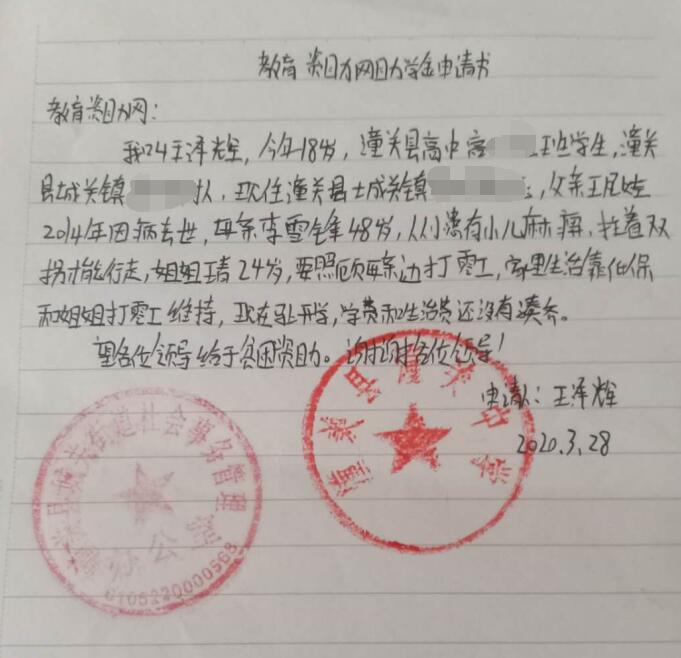 教育资助网助学金申请书
教育资助网：
我叫王泽辉，今年18岁，潼关县高中高 班学生，潼关
县城关镇 人，现住潼关县城关镇 ，父亲王
2014年因病去世，母亲李雪 48岁，从小患有小儿麻痹，拄着双
拐才能行走，姐姐王青24岁，要照顾母亲边打零工，家里生活靠低保
和姐姐打零工维持，现在马上开学，学费和生活费还没有凑齐。
望各位领导给于贫困资助。谢谢各位领导！
申请人：王泽辉
2020.3.28
潼关县潼关中学
潼关县城关街道社会事务管理
办公室